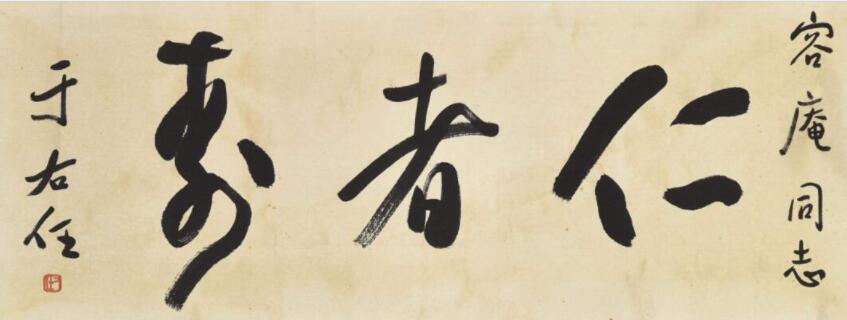 容庵同志
仁者寿
于右任